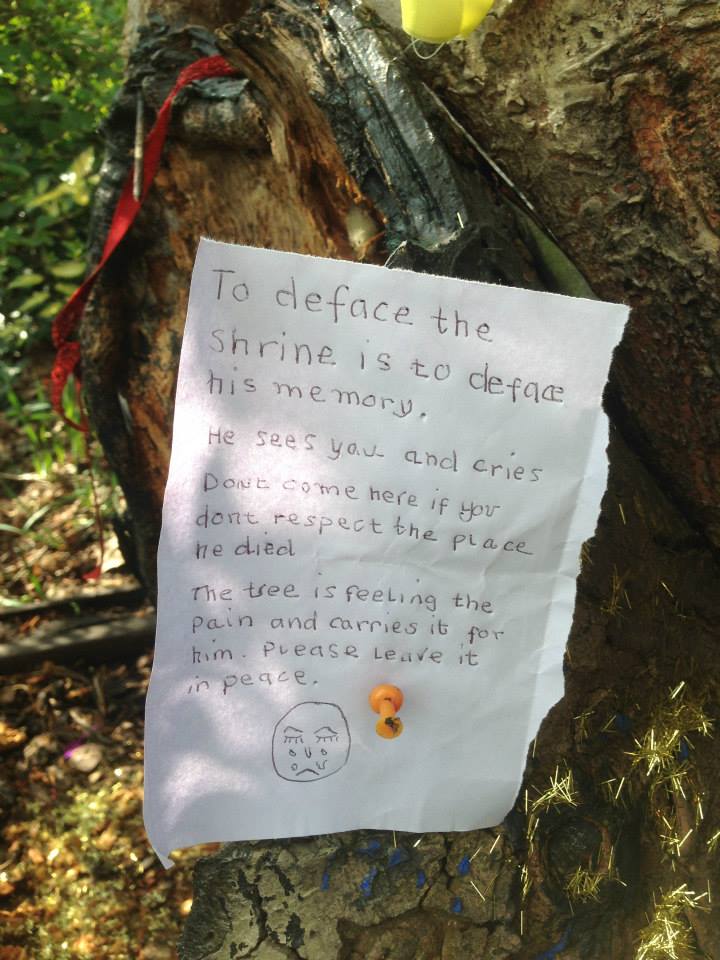 To deface the
shrine is to deface
his memory.
He sees you and cries
Dont come here if you
dont respect the place
he died
The tree is feeling the
pain and carries it for
him. Please leave it
in peace.